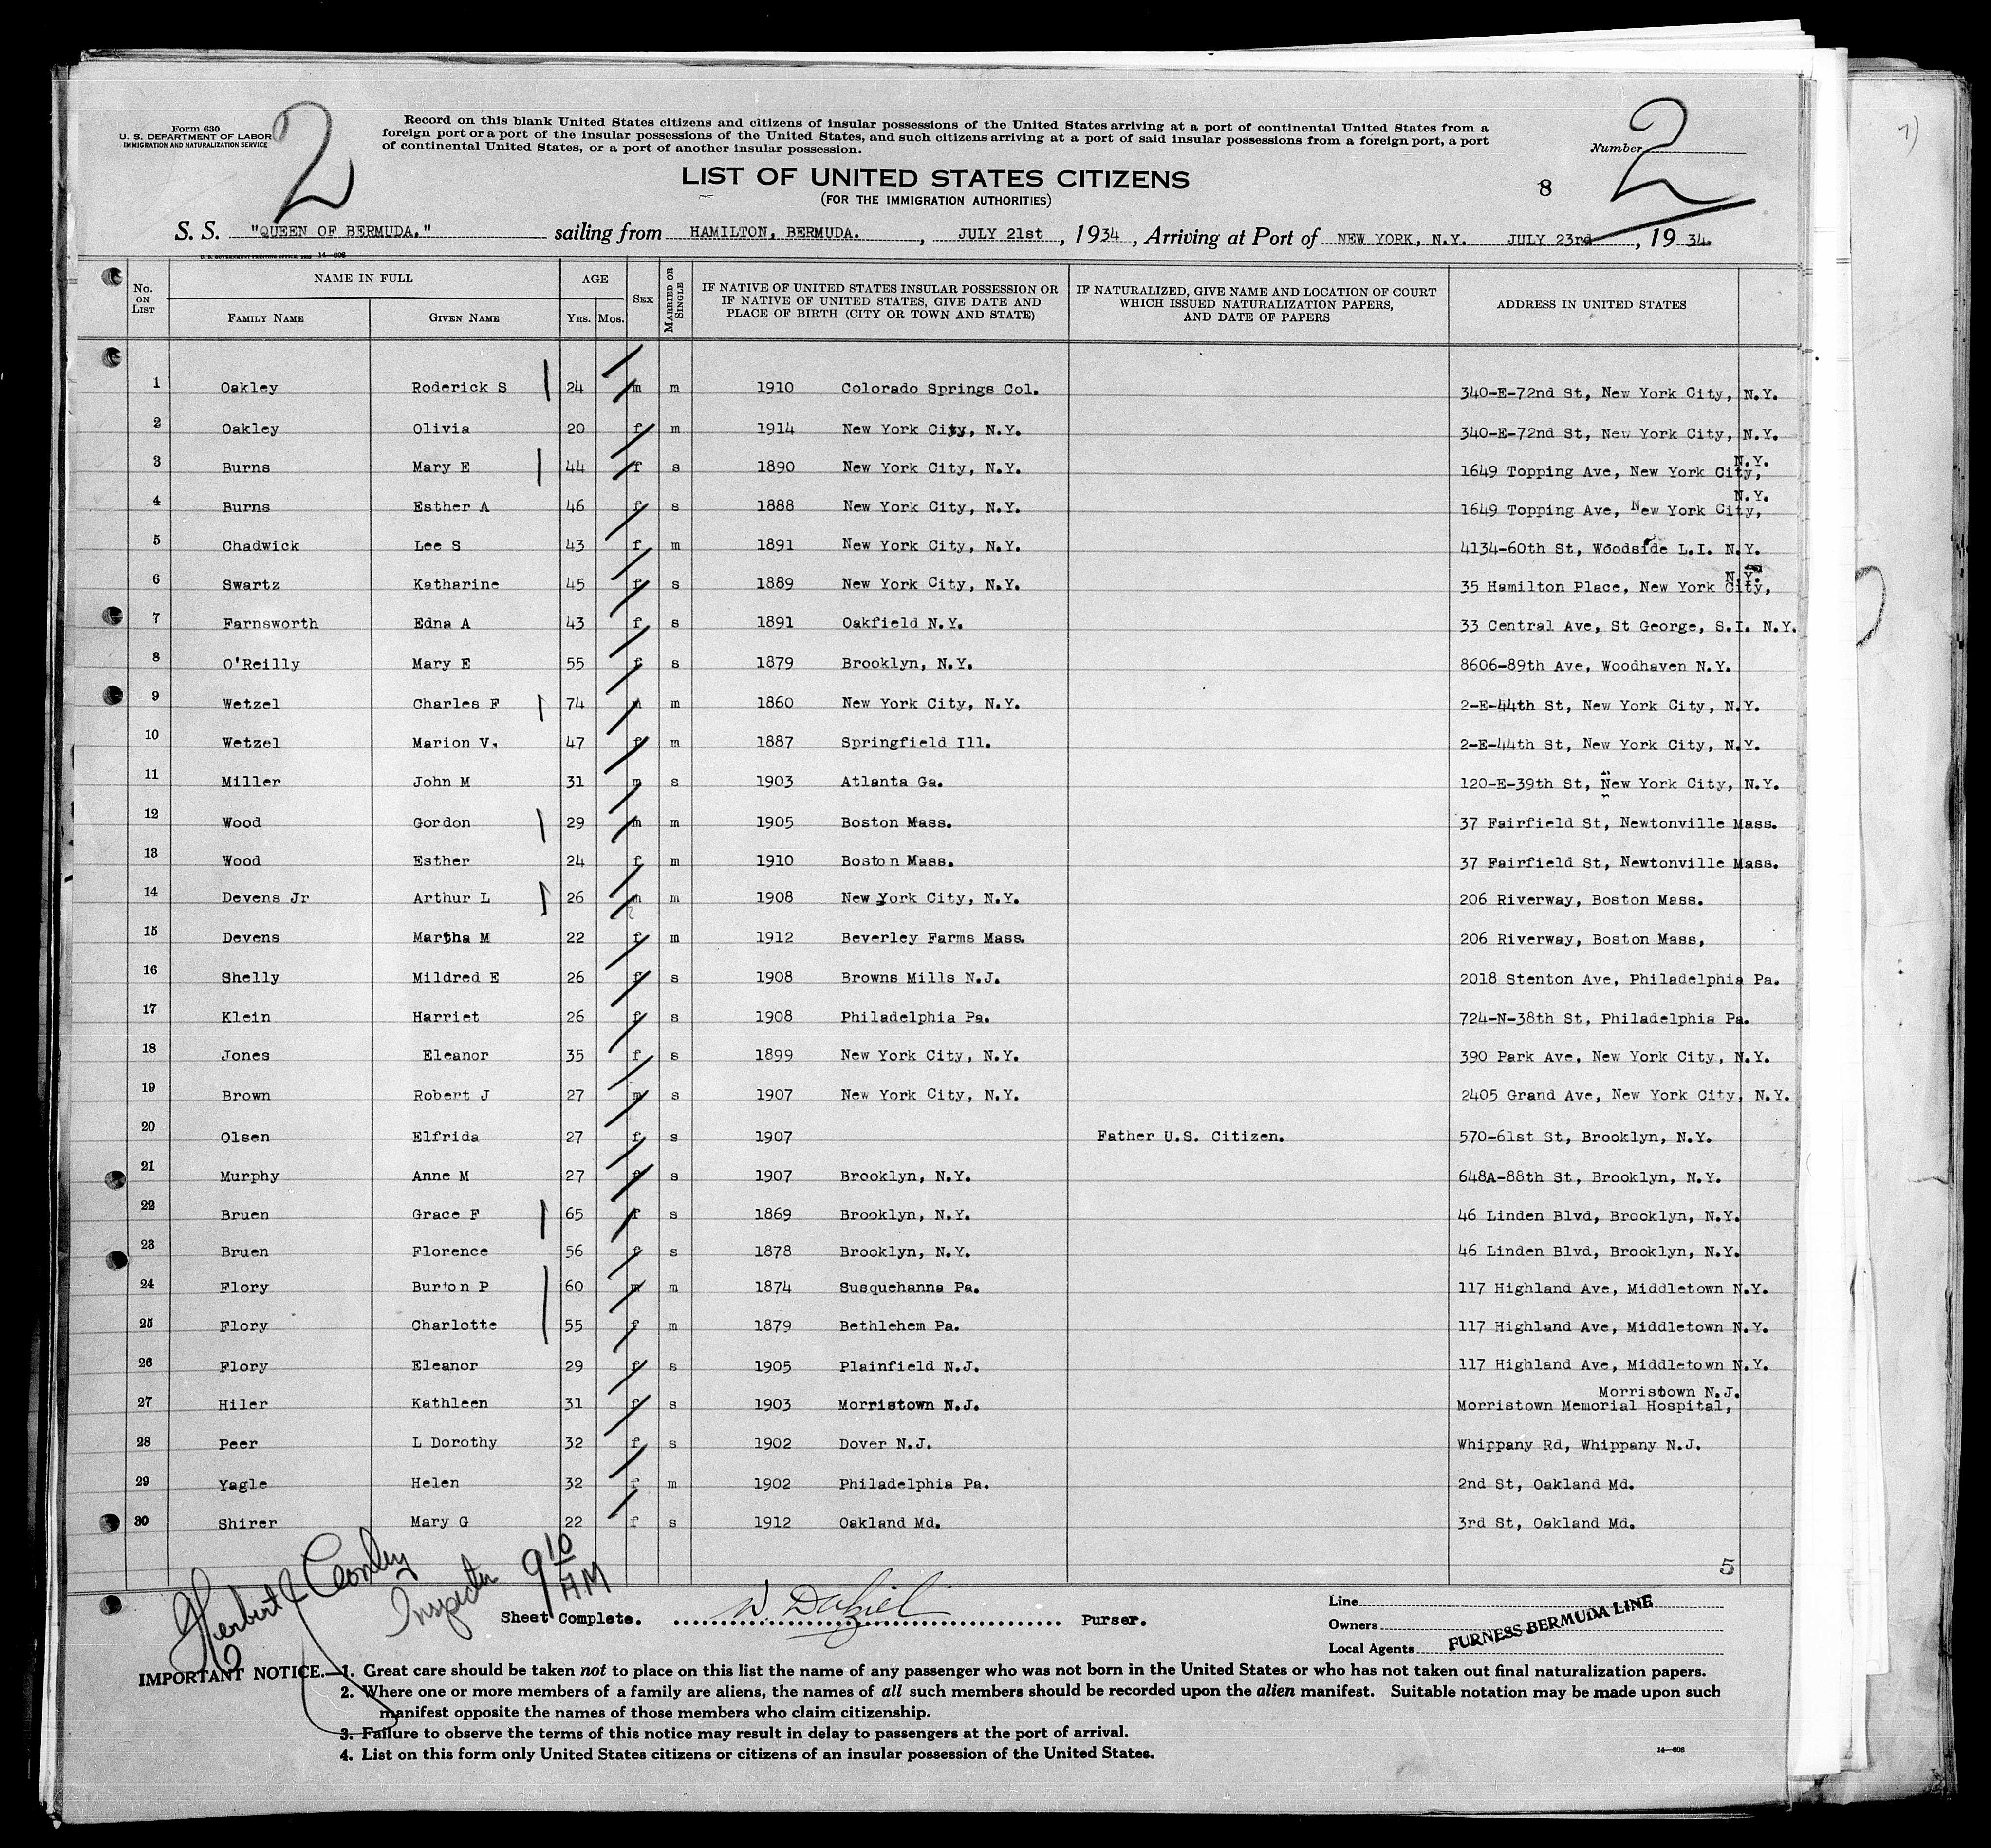 Form 630
U. S. DEPARTMENT OF LABOR
IMMIGRATION AND NATURALIZATION SERVICE
2
Record on this blank United States citizens and citizens of insular possessions of the United States arriving at a port of continental United States from a
foreign port or a port of the insular possessions of the United States, and such citizens arriving at a port of said insular possessions from a foreign port, a port
of continental United States, or a port of another insular possession.
Number 2
LIST OF UNITED STATES CITIZENS
(FOR THE IMMIGRATION AUTHORITIES)
8
S. S. "QUEEN OF BERMUDA." sailing from HAMILTON, BERMUDA. , JULY 21st , 1934 , Arriving at Port of NEW YORK, N.Y. JULY 23rd , 19 34.
14—608
No. ON LIST NAME IN FULL FAMILY NAME GIVEN NAME AGE YRS. MOS. SEX MARRIED OR SINGLE IF NATIVE OF UNITED STATES INSULAR POSSESSION OR IF NATIVE OF UNITED STATES, GIVE DATE AND PLACE OF BIRTH (CITY OR TOWN AND STATE) IF NATURALIZED, GIVE NAME AND LOCATION OF COURT WHICH ISSUED NATURALIZATION PAPERS, AND DATE OF PAPERS ADDRESS IN UNITED STATES
1 Oakley Roderick S 24 m m 1910 Colorado Springs Col. 340-E-72nd St, New York City, N.Y.
2 Oakley Olivia 20 f m 1914 New York City, N.Y. 340-E-72nd St, New York City, N.Y.
3 Burns Mary E 44 f s 1890 New York City, N.Y. 1649 Topping Ave, New York City, N.Y.
4 Burns Esther A 46 f s 1888 New York City, N.Y. 1649 Topping Ave, New York City, N.Y.
5 Chadwick Lee S 43 f m 1891 New York City, N.Y. 4134-60th St, Woodside L.I. N.Y.
6 Swartz Katharine 45 f s 1889 New York City, N.Y. 35 Hamilton Place, New York City, N.Y.
7 Farnsworth Edna A 43 f s 1891 Oakfield N.Y. 33 Central Ave, St George, S.I. N.Y.
8 O'Reilly Mary E 55 f s 1879 Brooklyn, N.Y. 8606-89th Ave, Woodhaven N.Y.
9 Wetzel Charles F 74 m m 1860 New York City, N.Y. 2-E-44th St, New York City, N.Y.
10 Wetzel Marion V. 47 f m 1887 Springfield Ill. 2-E-44th St, New York City, N.Y.
11 Miller John M 31 m s 1903 Atlanta Ga. 120-E-39th St, New York City, N.Y.
12 Wood Gordon 29 m m 1905 Boston Mass. 37 Fairfield St, Newtonville Mass.
13 Wood Esther 24 f m 1910 Boston Mass. 37 Fairfield St, Newtonville Mass.
14 Devens Jr Arthur L 26 m m 1908 New York City, N.Y. 206 Riverway, Boston Mass.
15 Devens Martha M 22 f m 1912 Beverley Farms Mass. 206 Riverway, Boston Mass,
16 Shelly Mildred E 26 f s 1908 Browns Mills N.J. 2018 Stenton Ave, Philadelphia Pa.
17 Klein Harriet 26 f s 1908 Philadelphia Pa. 724-N-38th St, Philadelphia Pa.
18 Jones Eleanor 35 f s 1899 New York City, N.Y. 390 Park Ave, New York City, N.Y.
19 Brown Robert J 27 m s 1907 New York City, N.Y. 2405 Grand Ave, New York City, N.Y.
20 Olsen Elfrida 27 f s 1907 Father U.S. Citizen. 570-61st St, Brooklyn, N.Y.
21 Murphy Anne M 27 f s 1907 Brooklyn, N.Y. 648A-88th St, Brooklyn, N.Y.
22 Bruen Grace F 65 f s 1869 Brooklyn, N.Y. 46 Linden Blvd, Brooklyn, N.Y.
23 Bruen Florence 56 f s 1878 Brooklyn, N.Y. 46 Linden Blvd, Brooklyn, N.Y.
24 Flory Burton P 60 m m 1874 Susquehanna Pa. 117 Highland Ave, Middletown N.Y.
25 Flory Charlotte 55 f m 1879 Bethlehem Pa. 117 Highland Ave, Middletown N.Y.
26 Flory Eleanor 29 f s 1905 Plainfield N.J. 117 Highland Ave, Middletown N.Y.
27 Hiler Kathleen 31 f s 1903 Morristown N.J. Morristown Memorial Hospital, Morristown N.J.
28 Peer L Dorothy 32 f s 1902 Dover N.J. Whippany Rd, Whippany N.J.
29 Yagle Helen 32 f m 1902 Philadelphia Pa. 2nd St, Oakland Md.
30 Shirer Mary G 22 f s 1912 Oakland Md. 3rd St, Oakland Md.
5
Herbert J Inspector 9 10 AM
Sheet Complete. W. Dalziel Purser.
Line
Owners
Local Agents FURNESS BERMUDA LINE
IMPORTANT NOTICE.—1. Great care should be taken not to place on this list the name of any passenger who was not born in the United States or who has not taken out final naturalization papers.
2. Where one or more members of a family are aliens, the names of all such members should be recorded upon the alien manifest. Suitable notation may be made upon such
manifest opposite the names of those members who claim citizenship.
3. Failure to observe the terms of this notice may result in delay to passengers at the port of arrival.
4. List on this form only United States citizens or citizens of an insular possession of the United States.
14—608